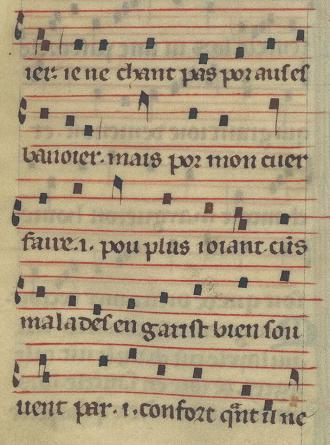 ier. ie ne chant pas por aus es
banoier. mais por mon cuer
faire .i. pou plus ioiant. cũs
malades en garist bien sou
uent par .i. confort q̃nt il ne